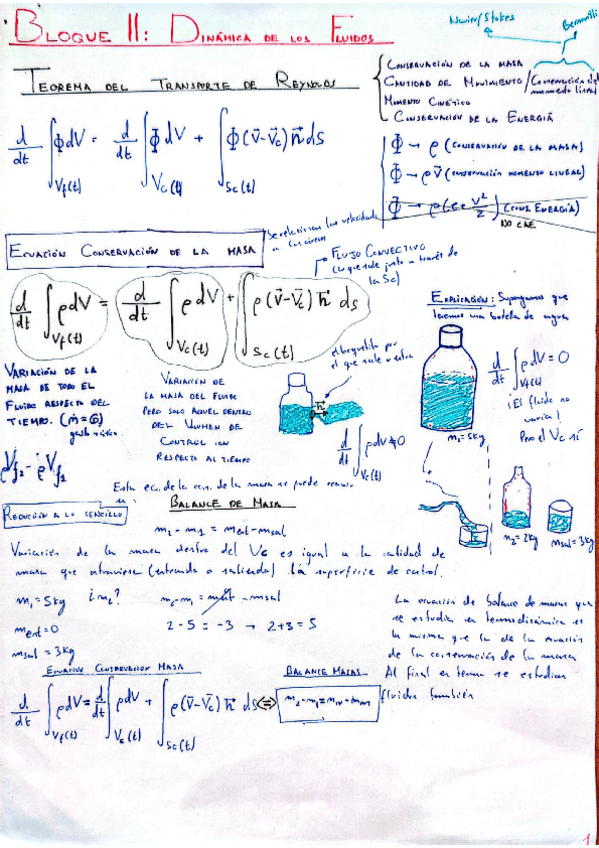 BLOQUE II: DINÁMICA DE LOS FLUIDOS
Navier/Stokes
Bernoulli
TEOREMA DEL TRANSPORTE DE REYNOLDS
CONSERVACIÓN DE LA MASA
CANTIDAD DE MOVIMIENTO/Conservación del momento lineal
MOMENTO CINÉTICO
CONSERVACIÓN DE LA ENERGÍA
d/dt ∫Vf(t) ΦdV = d/dt ∫Vc(t) ΦdV + ∫Sc(t) Φ(v̄-v̄c) n̄ ds
Φ → ρ (CONSERVACIÓN DE LA MASA)
Φ → ρv̄ (CONSERVACIÓN MOMENTO LINEAL)
Φ → ρ(e+v²/2) (CONS. ENERGÍA)
NO CAE
ECUACIÓN CONSERVACIÓN DE LA MASA
se relacionan las velocidades
FLUJO CONVECTIVO
(lo que sale justo a través de
la Sc)
d/dt ∫Vf(t) ρdV = d/dt ∫Vc(t) ρdV + ∫Sc(t) ρ(v̄-v̄c) n̄ ds
EXPLICACIÓN: Supongamos que
tenemos una botella de agua
VARIACIÓN DE LA
MASA DE TODO EL
FLUIDO RESPECTO DEL
TIEMPO. (ṁ=G)
gasto másico
VARIACIÓN DE
LA MASA DEL FLUIDO
PERO SOLO AQUEL DENTRO
DEL VOLUMEN DE
CONTROL CON
RESPECTO AL TIEMPO
el boquetito por
el que sale o entra
n̄
d/dt ∫Vc(t) ρdV ≠ 0
d/dt ∫Vf(t) ρdV = 0
¡El fluido no
varía!
Pero el Vc sí
m₁=5kg
m₂=2kg
msal=3kg
Esta ec. de la con. de la masa se puede
REDUCIÓN A LO SENCILLO
BALANCE DE MASA
m₂-m₁ = ment-msal
Variación de la masa dentro del Vc es igual a la cantidad de
masa que atraviesa (entrando o saliendo) la superficie de control.
m₁=5kg ¿m₂?
ment=0
msal=3kg
m₂-m₁=ment-msal
2-5=-3 → 2+3=5
La ecuación de balance de masas que
se estudia en termodinámica es
la misma que la de la ecuación
de la conservación de la masa
Al final en termo se estudian
fluidos también
ECUACIÓN CONSERVACIÓN MASA
BALANCE MASAS
d/dt ∫Vf(t) ρdV = d/dt ∫Vc(t) ρdV + ∫Sc(t) ρ(v̄-v̄c) n̄ ds ⇔
1